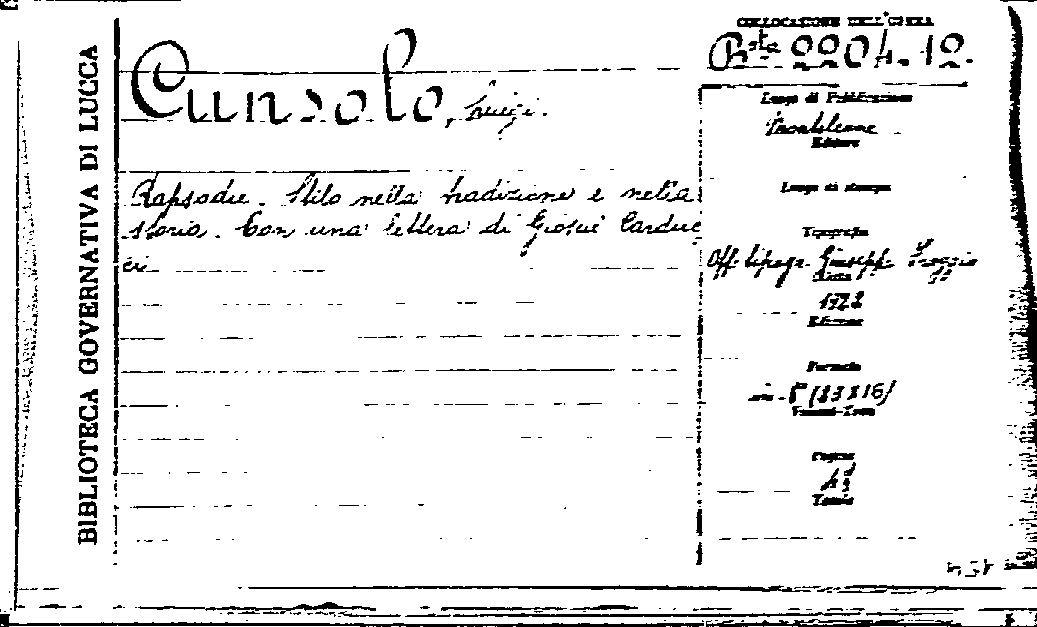 BIBLIOTECA GOVERNATIVA DI LUCCA
COLLOCAZIONE DELL'OPERA
Bsta 2204.12.
Cunsolo, Luigi.
Rapsodie. Stilo nella tradizione e nella
storia. Con una lettera di Giosuè Carduc
ci.
Luogo di Pubblicazione
Monteleone
Editore
Luogo di stampa
Tipografia
Off. tipogr. Giuseppe
Data
Edizione
Formato
in-8° (23x16)
Pagine
Tavole